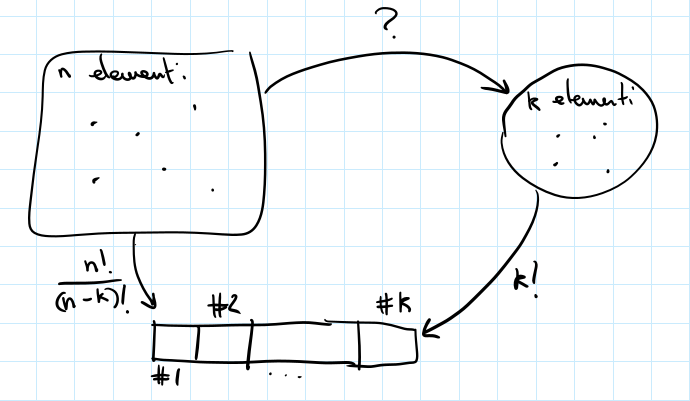 ?
n elementi
k elementi
n!
(n-k)!
k!
#2
#k
#1
...